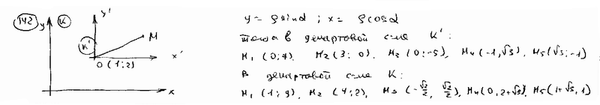 142
y K y'
K' M
O (1;2) x'
x
y = ρsinα ; x = ρcosα
Тогда в декартовой с-ме K':
M₁ (0;7) M₂ (3; 0) M₃ (0;-5) M₄ (-1,√3) M₅ (√3;-1)
В декартовой с-ме K:
M₁ (1; 9) M₂ (4;2) M₃ (-√2/2, √2/2) M₄ (0, 2+√3) M₅ (1+√3, 1)